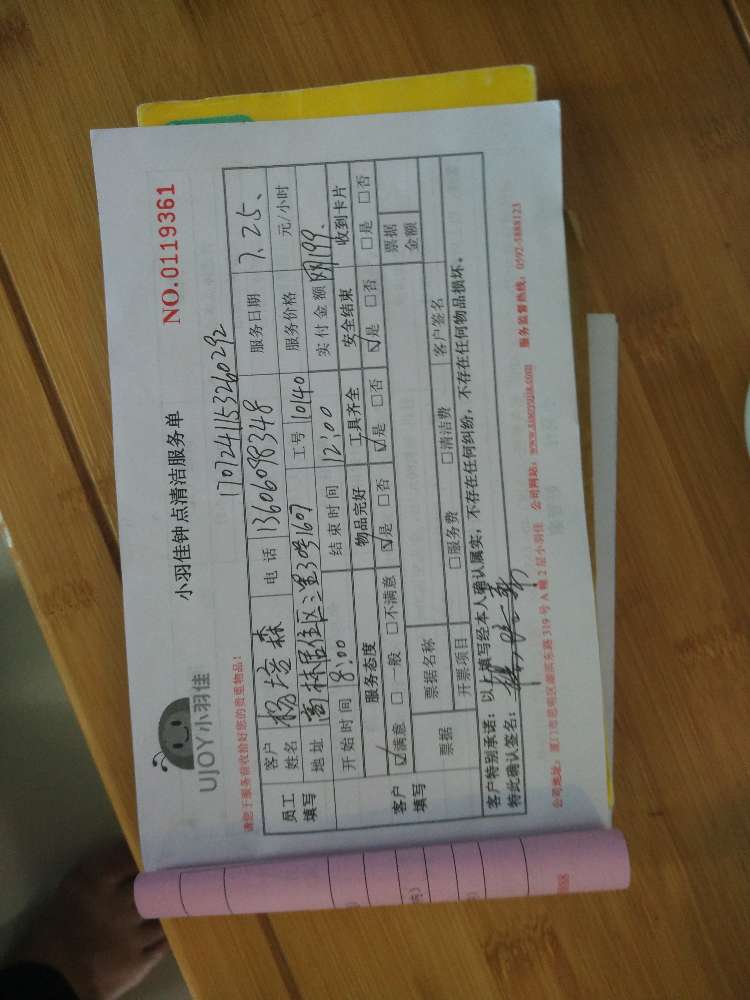 UJOY小羽佳
小羽佳钟点清洁服务单
NO.0119361
1707241153260292
请您于服务前收拾好您的贵重物品!
员工填写
客户姓名 杨培森 电话 13606098348 服务日期 7.25、
地址 高林居住区二里30号1607 工号 10140 服务价格 元/小时
开始时间 8:00 结束时间 12:00 实付金额 199、
客户填写
服务态度 物品完好 工具齐全 安全结束 收到卡片
☑满意 □一般 □不满意 ☑是 □否 ☑是 □否 ☑是 □否 □是 □否
票据 票据名称 票据金额
开票项目 □服务费 □清洁费 客户签名
客户特别承诺:以上填写经本人确认属实,不存在任何纠纷,不存在任何物品损坏。
特此确认签名:
公司地址:厦门市思明区湖滨东路319号A幢2层小羽佳 公司网站:www.xiaoyujia.com 服务监督热线:0592-5888123